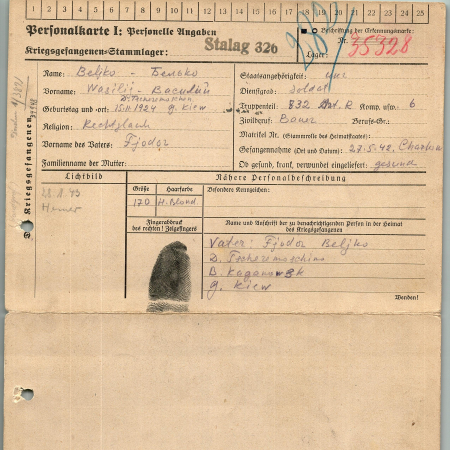 1 2 3 4 5 6 7 8 9 10 11 12 13 14 15 16 17 18 19 20 21 22 23 24 25
Personalkarte I: Personelle Angaben
Beschriftung der Erkennungsmarke:
Kriegsgefangenen-Stammlager: Stalag 326
Nr. 35328
Lager:
Kriegsgefangenen
Name: Beljko - Белько
Vorname: Wasilii - Василий
Geburtstag und -ort: 15.11.1924 g. Kiew
Religion: Rechtglaub
Vorname des Vaters: Fjodor
Familienname der Mutter:
Staatsangehörigkeit:
Dienstgrad: Soldat
Truppenteil: 832 Art. R Komp. usw.: 6
Zivilberuf: Bauer Berufs-Gr.:
Matrikel Nr. (Stammrolle des Heimatstaates):
Gefangennahme (Ort und Datum): 27.5.42, Charkow
Ob gesund, krank, verwundet eingeliefert: gesund
Lichtbild
Nähere Personalbeschreibung
Hemer
Größe Haarfarbe Besondere Kennzeichen:
170 H. Blond
Fingerabdruck
des rechten! Zeigefingers
Name und Anschrift der zu benachrichtigenden Person in der Heimat
des Kriegsgefangenen
Vater: Fjodor Beljko
D. Tscherimoschino
B. Kaganowsk
g. Kiew
Wenden!